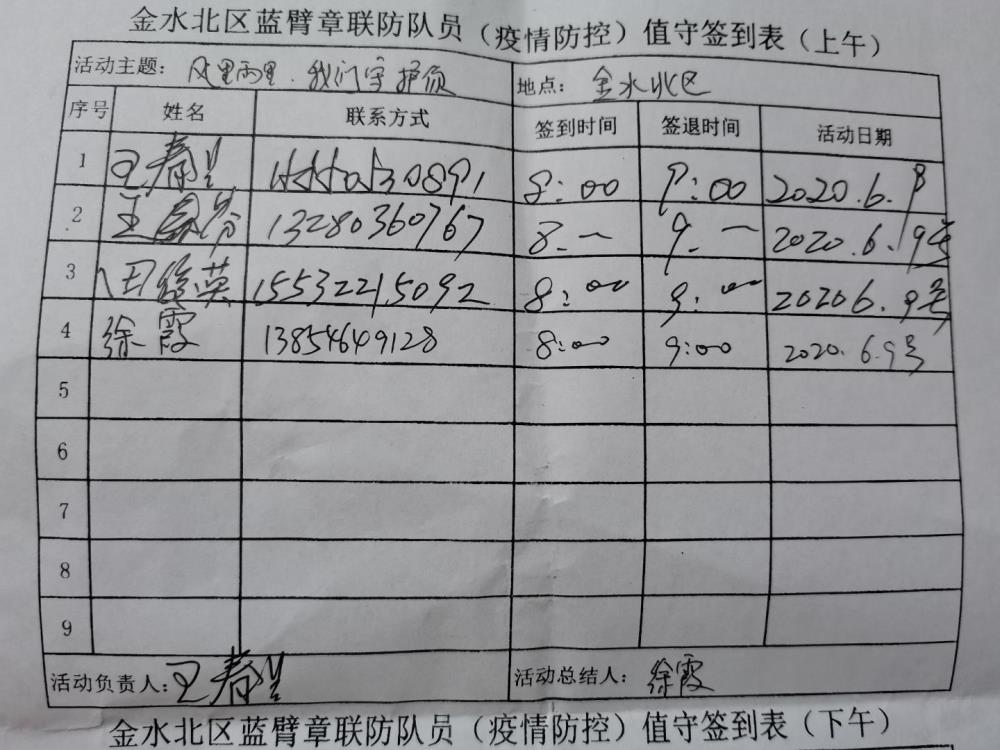 金水北区蓝臂章联防队员（疫情防控）值守签到表（上午）
活动主题：风里雨里.我们守护您 地点：金水北区
序号 姓名 联系方式 签到时间 签退时间 活动日期
1 王春 8:00 9:00 2020.6.9
2 王 13280360767 8.一 9.一 2020.6.9号
3 田 英 15532215092 8:00 9:00 20206.9号
4 徐霞 13854649128 8:00 9:00 2020.6.9号
5
6
7
8
9
活动负责人：王春 活动总结人：徐霞
金水北区蓝臂章联防队员（疫情防控）值守签到表（下午）